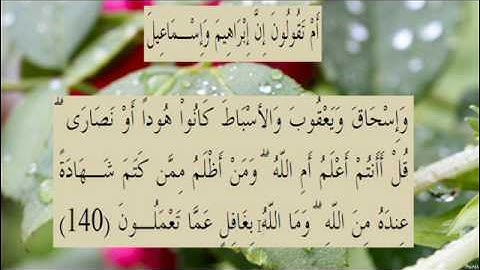 أَمْ تَقُولُونَ إِنَّ إِبْرَاهِيمَ وَإِسْـمَاعِيلَ
وَإِسْحَاقَ وَيَعْقُوبَ وَالأَسْبَاطَ كَانُواْ هُوداً أَوْ نَصَارَى ۗ
قُلْ أَأَنتُمْ أَعْلَمُ أَمِ اللّهُ ۗ وَمَنْ أَظْلَمُ مِمَّن كَتَمَ شَـهَادَةً
عِندَهُ مِنَ اللّهِ ۗ وَمَا اللّهُ بِغَافِلٍ عَمَّا تَعْمَلُـونَ (140)